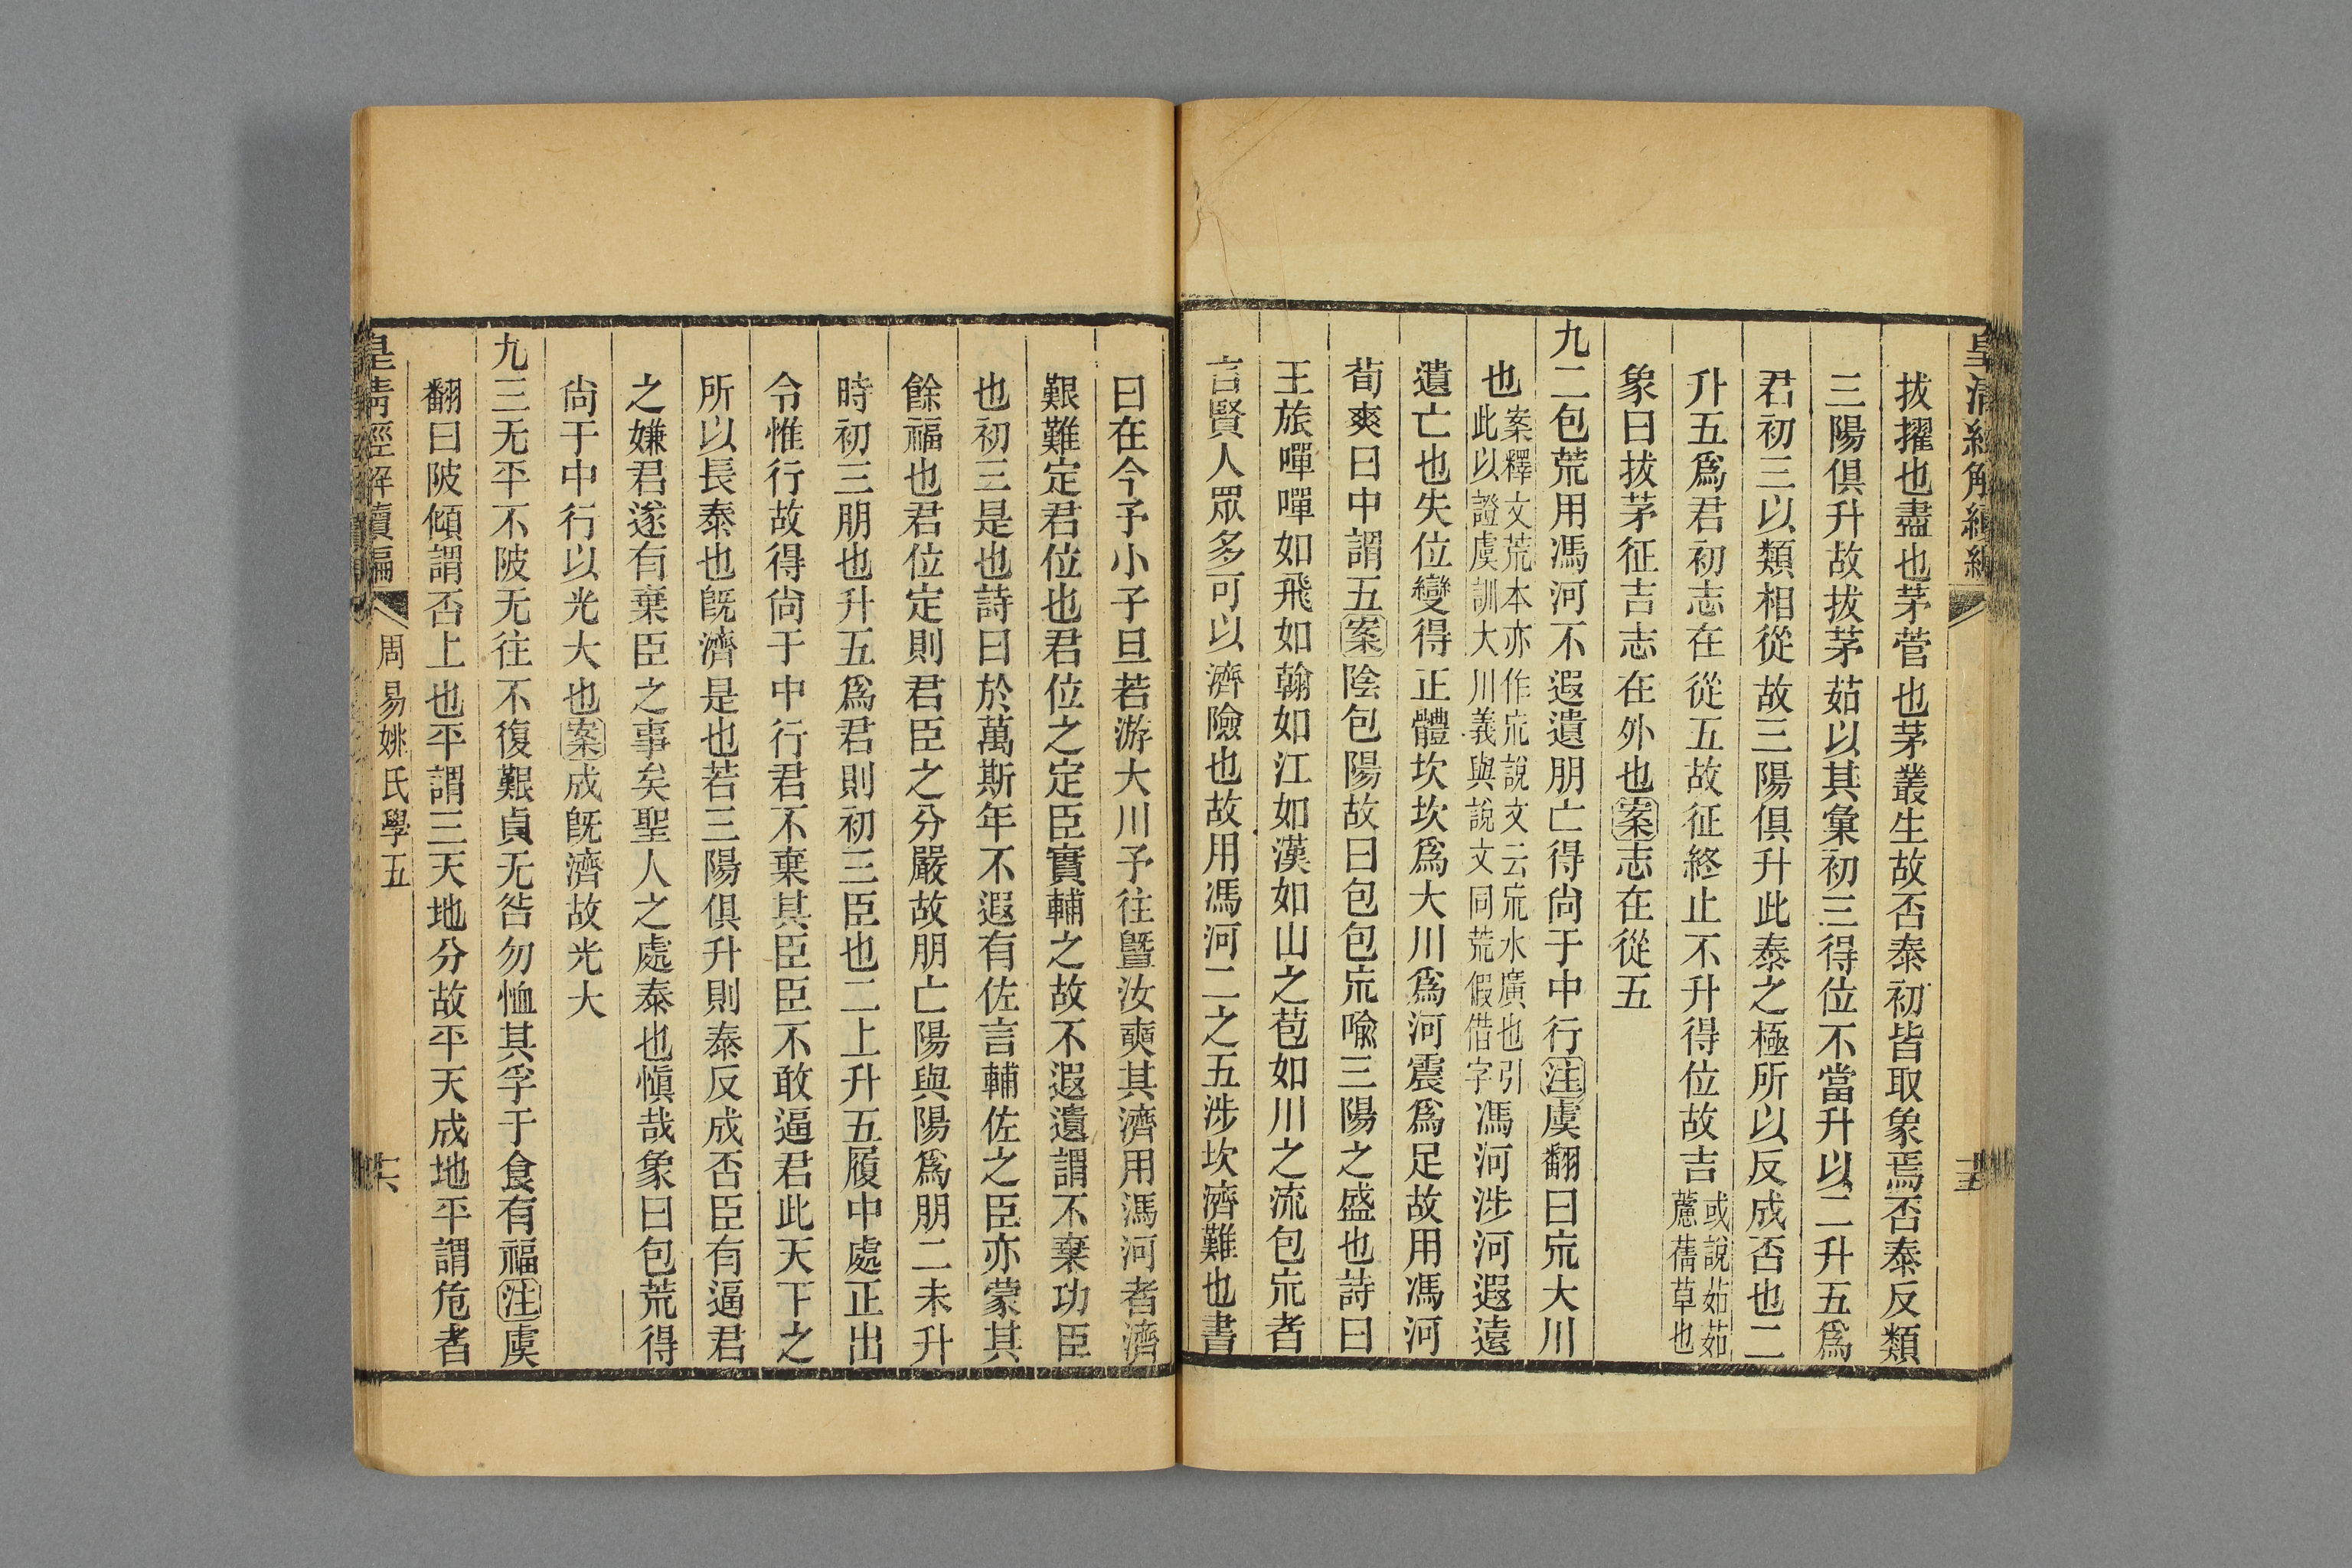 皇清經解續編
十五
拔擢也盡也茅菅也茅叢生故否泰初皆取象焉否泰反類
三陽俱升故拔茅茹以其彙初三得位不當升以二升五爲
君初三以類相從故三陽俱升此泰之極所以反成否也二
升五爲君初志在從五故征終止不升得位故吉或說茹茹
藘蒨草也
象曰拔茅征吉志在外也案志在從五
九二包荒用馮河不遐遺朋亡得尙于中行注虞翻曰巟大川
也案釋文荒本亦作巟說文云巟水廣也引
此以證虞訓大川義與說文同荒假借字馮河涉河遐遠
遺亡也失位變得正體坎坎爲大川爲河震爲足故用馮河
荀爽曰中謂五案陰包陽故曰包包巟喩三陽之盛也詩曰
王旅嘽嘽如飛如翰如江如漢如山之苞如川之流包巟者
言賢人眾多可以濟險也故用馮河二之五涉坎濟難也書
曰在今予小子旦若游大川予往曁汝奭其濟用馮河者濟
艱難定君位也君位之定臣實輔之故不遐遺謂不棄功臣
也初三是也詩曰於萬斯年不遐有佐言輔佐之臣亦蒙其
餘福也君位定則君臣之分嚴故朋亡陽與陽爲朋二未升
時初三朋也升五爲君則初三臣也二上升五履中處正出
令惟行故得尙于中行君不棄其臣臣不敢逼君此天下之
所以長泰也旣濟是也若三陽俱升則泰反成否臣有逼君
之嫌君遂有棄臣之事矣聖人之處泰也愼哉象曰包荒得
尙于中行以光大也案成旣濟故光大
九三无平不陂无往不復艱貞无咎勿恤其孚于食有福注虞
翻曰陂傾謂否上也平謂三天地分故平天成地平謂危者
皇清經解續編
周易姚氏學五
十六